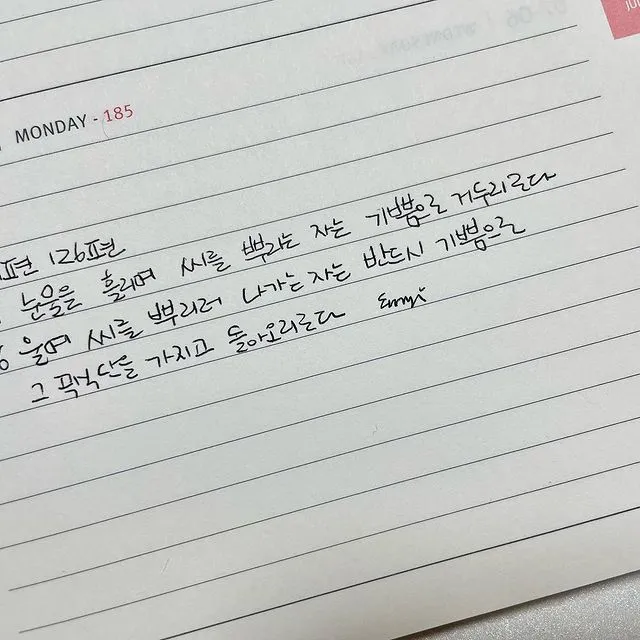 MONDAY - 185
편 126편
눈물을 흘리며 씨를 뿌리는 자는 기쁨으로 거두리로다
울며 씨를 뿌리러 나가는 자는 반드시 기쁨으로
그 곡식단을 가지고 돌아오리로다